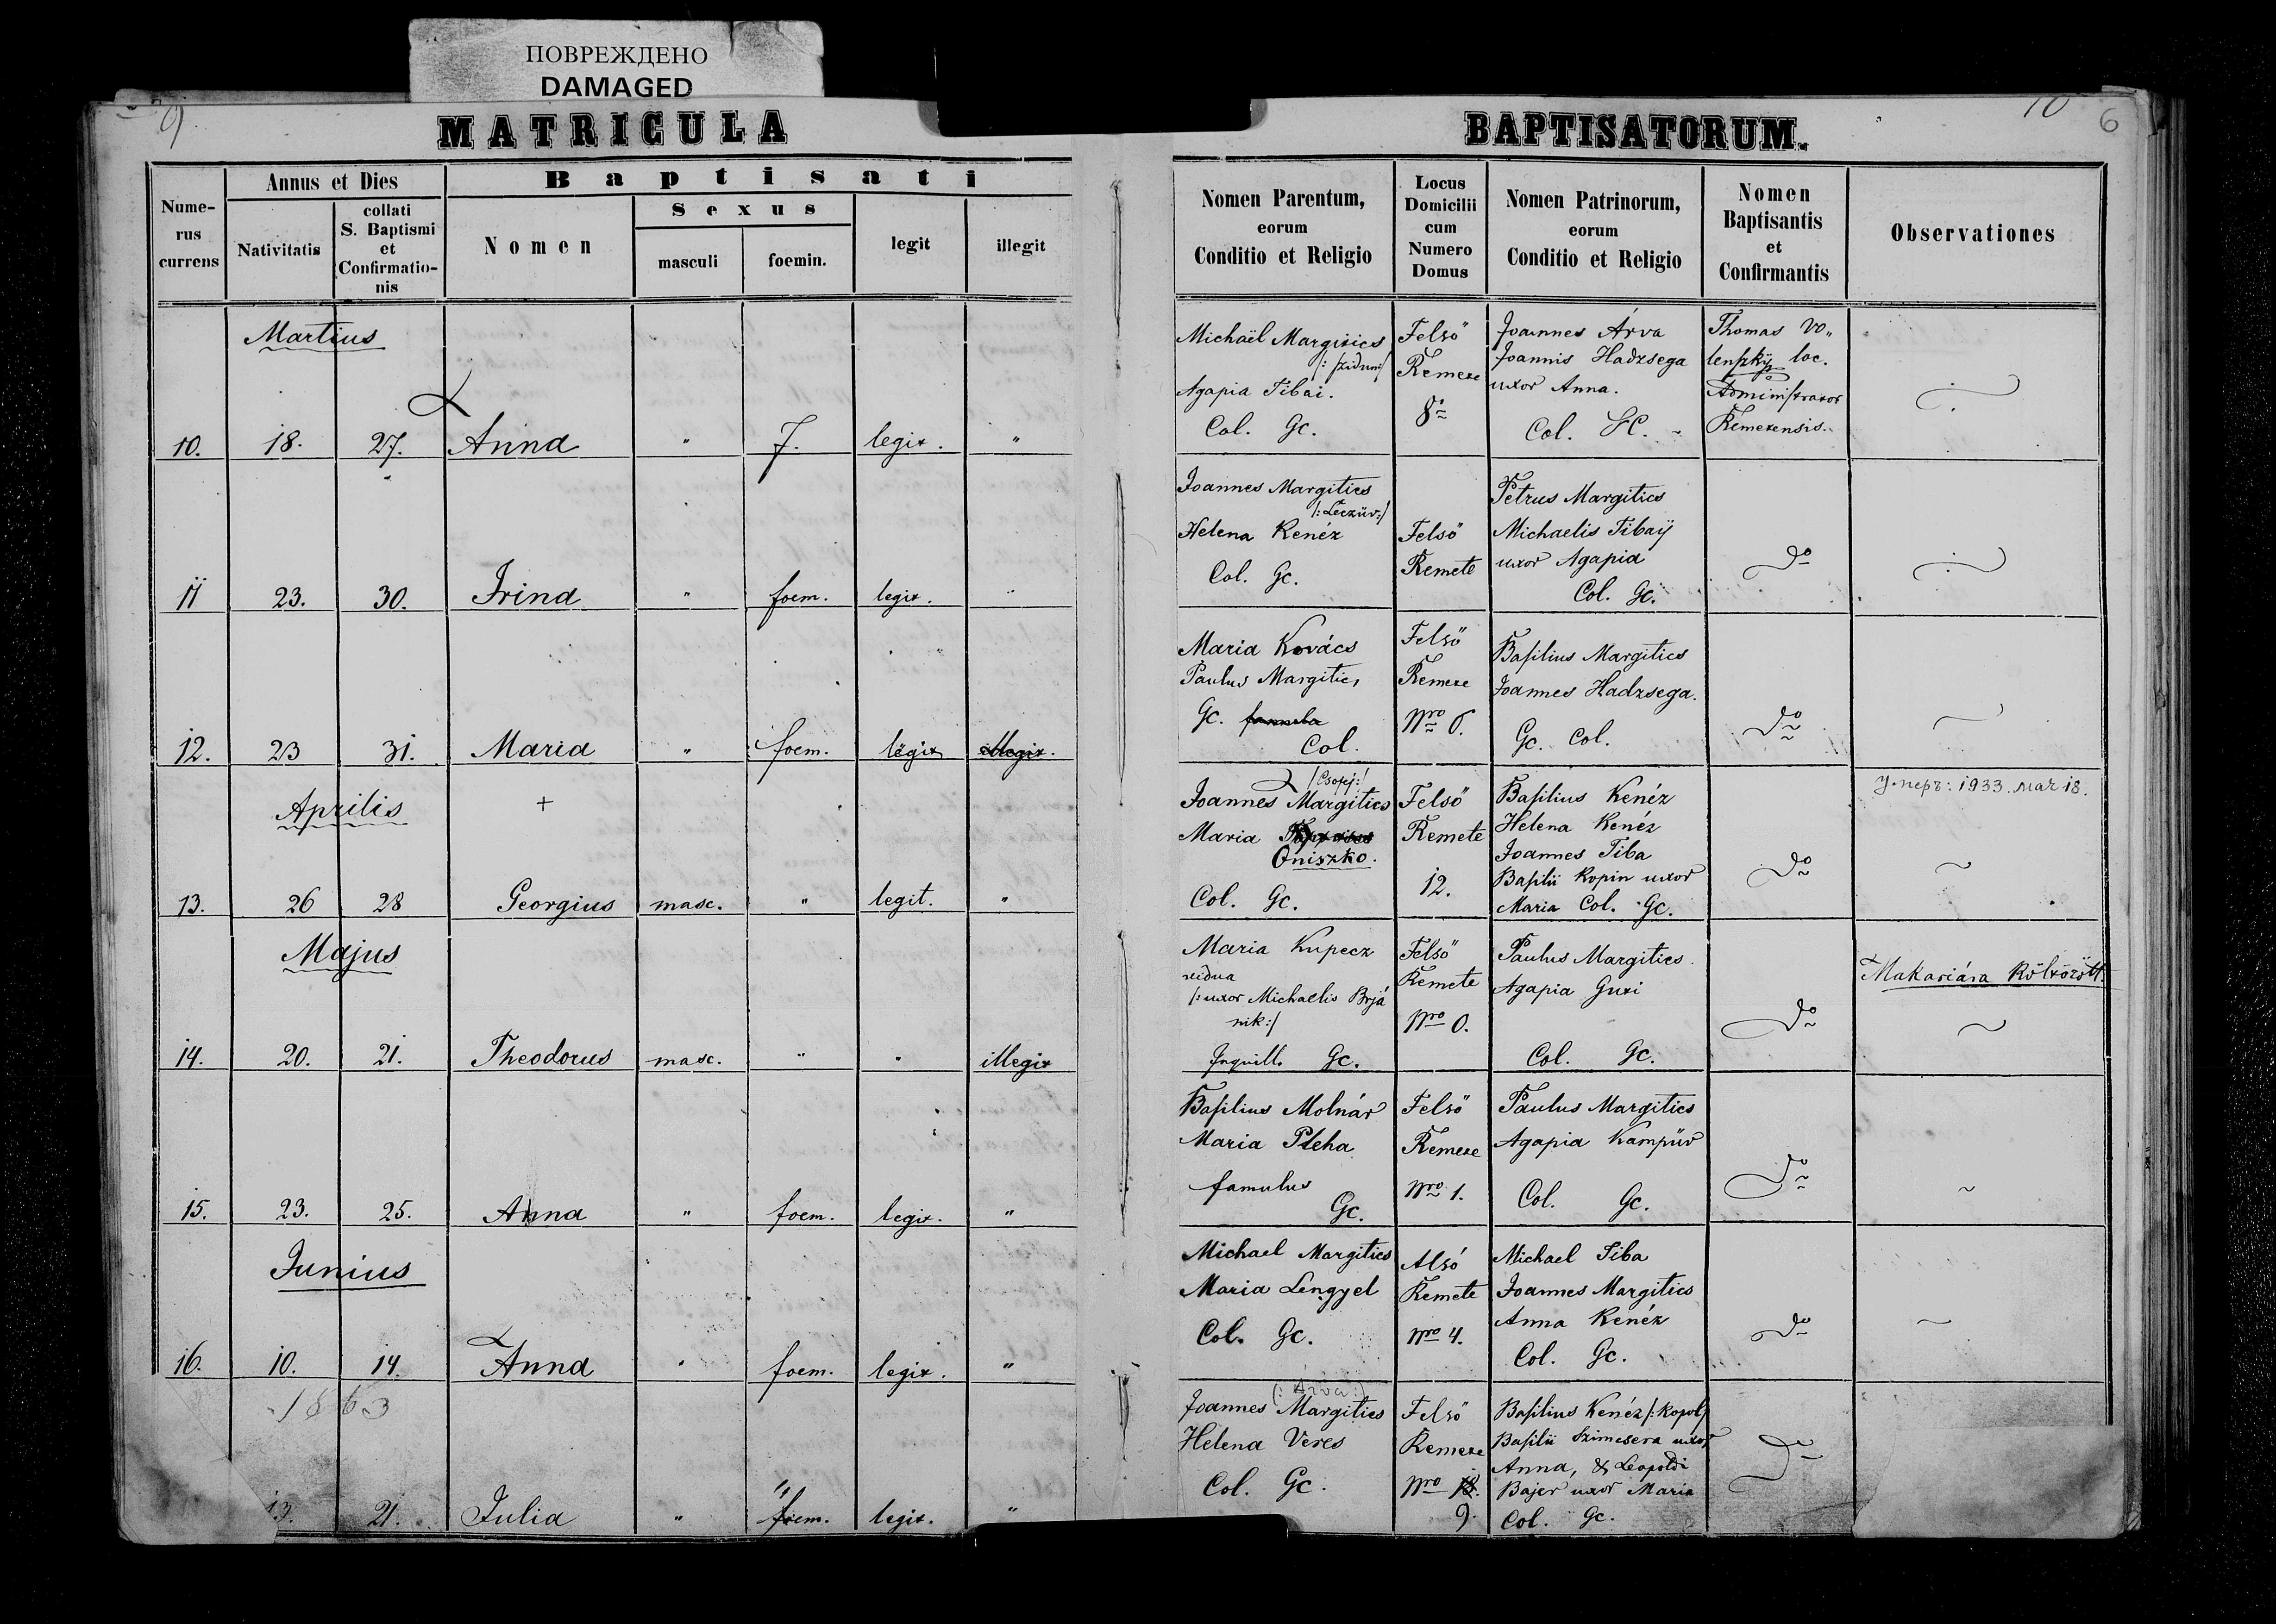 ПОВРЕЖДЕНО
DAMAGED
9
MATRICULA
Numerus currens
Annus et Dies
Nativitatis
collati S. Baptismi et Confirmatio-nis
Baptisati
Nomen
Sexus
masculi
foemin.
legit
illegit
Martius
10. 18. 27. Anna " f. legit. "
11 23. 30. Irina " foem. legit. "
12. 23 31. Maria " foem. legit illegit.
Aprilis +
13. 26 28 Georgius masc. " legit. "
Majus
14. 20. 21. Theodorus masc. " " illegit
15. 23. 25. Anna " foem. legit. "
Junius
16. 10. 14. Anna " foem. legit. "
1863
13. 21. Julia " foem. legit. "
10 6
BAPTISATORUM.
Nomen Parentum,
eorum
Conditio et Religio
Locus
Domicilii
cum
Numero
Domus
Nomen Patrinorum,
eorum
Conditio et Religio
Nomen
Baptisantis
et
Confirmantis
Observationes
Michaël Margitics
Agapia Tibai.
Col. Gc.
Felső
Remete
8
Joannes Árva
Joannis Hadzsega
uxor Anna.
Col. GC.
Thomas Vo„
lenszky loc.
Administrator
Remetensis.
Joannes Margitics
/:Leczür:/
Helena Kenéz
Col. Gc.
Felső
Remete
Petrus Margitics
Michaelis Tibaÿ
uxor Agapia
Col. Gc.
do
Maria Kovács
Paulus Margitics
Gc. famula
Col.
Felső
Remete
Nro 6.
Basilius Margitics
Joannes Hadzsega.
Gc. Col.
do
/:Csopej:/
Joannes Margitics
Maria
Oniszko.
Col. Gc.
Felső
Remete
12.
Basilius Kenéz
Helena Kenéz
Joannes Tiba
Basilii Kopin uxor
Maria Col. Gc.
do
1933. мат 18.
Maria Kupecz
vidua
/:uxor Michaelis Brjá
nik:/
Inquill. Gc.
Felső
Remete
Nro 0.
Paulus Margitics
Agapia Guti
Col. Gc.
do
Makariára költözött.
Basilius Molnár
Maria Pleha
famulus
Gc.
Felső
Remete
Nro 1.
Paulus Margitics
Agapia Kampüv
Col. Gc.
do
Michael Margitics
Maria Lengyel
Col. Gc.
Alsó
Remete
Nro 4.
Michael Tiba
Joannes Margitics
Anna Kenéz
Col. Gc.
do
(:Árva:)
Joannes Margitics
Helena Veres
Col. Gc.
Felső
Remete
Nro 18.
9.
Basilius Kenéz /:Kopol/
Basilii Szimcsera uxor
Anna, & Leopoldi
Bajer uxor Maria
Col. Gc.
do